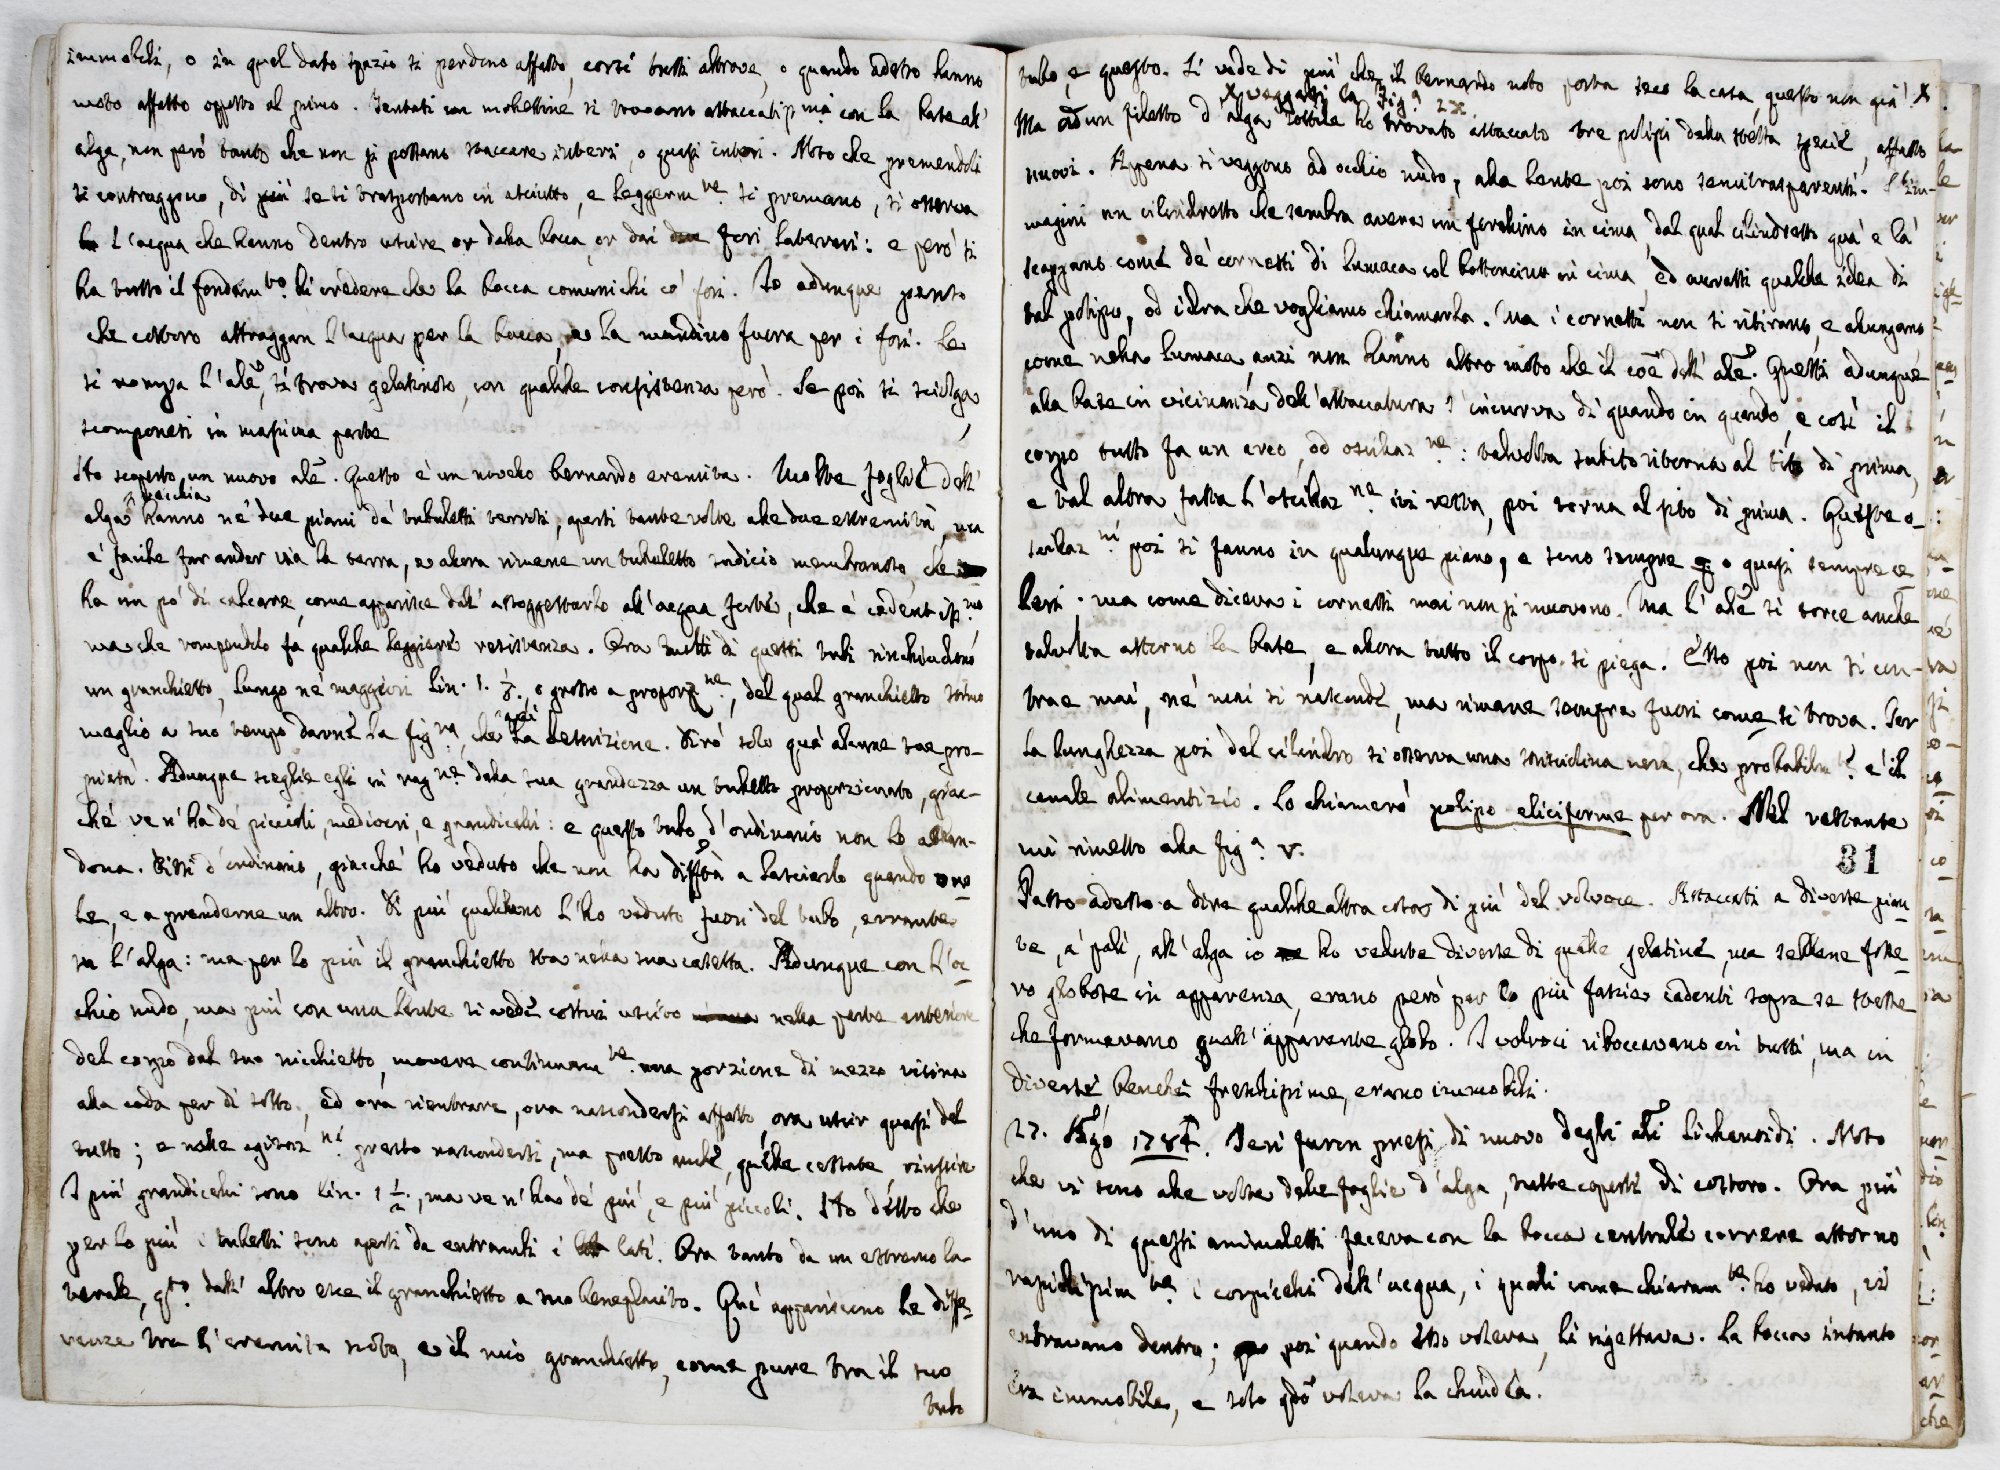 immobili, o in quel dato spazio si perdono affatto, corsi tutti altrove, o quando adesso hanno
moto affatto opposto al primo. Tentati con mollettine, si trovano attaccatissimi con la base all'
alga, non però tanto che non si possano staccare interi, o quasi interi. Noto che premendoli
si contraggono, di più se si trasportano in asciutto, e leggerm.te si premano, si osserva
l'acqua che hanno dentro uscire or dalla bocca, or dai fori laterari: e però si
ha tutto il fondam.to di credere che la bocca comunichi co' fori. Io adunque penso
che costoro attraggan l'acqua per la bocca, e la mandino fuora per i fori. Se
si rompa l'ale, si trova gelatinoso, con qualche consistenza però. Se poi si sciolga,
scomponesi in massima parte
Ho scoperto un nuovo ale. Questo è un novello bernardo eremita. Molte foglie dell'
alga vecchia hanno ne' due piani de' tubuletti terrosi, aperti tante volte alle due estremità, ma
è facile far andar via la terra, e allora rimane un tubuletto sudicio membranoso, che
ha un po' di calcare, come apparisce dall' assoggettarlo all'acqua forte, che è cedentiss.mo
ma che rompendolo fa qualche leggiera resistenza. Ora tutti di questi tubi rinchiudono
un granchietto, lungo ne' maggiori lin. 1. 1/8. e grosso a proporz.ne, del qual granchietto stimo
meglio a suo tempo darne la fig.ra, che qui la descrizione. Dirò solo quà alcune sue pro-
prietà. Adunque sceglie egli in rag.ne dalla sua grandezza un tubetto proporzionato, giac-
chè ve n'ha de' piccioli, mediocri, e grandicelli: e questo tubo d'ordinario non lo abban-
dona. Dissi d'ordinario, giacchè ho veduto che non ha difftà a lasciarlo quando vuo
le, e a prenderne un altro. Di più qualcheduno l'ho veduto fuori del tubo, errante
su l'alga: ma per lo più il granchietto sta nella sua casetta. Adunque con l'oc
chio nudo, ma più con una lente si vede costui uscito nella parte anteriore
del corpo dal suo nicchietto, movere continuam.te una porzione di mezzo vicina
alla coda per di sotto, ed ora rientrare, ora nascondersi affatto, ora uscir quasi del
tutto; e nelle agitaz.ni presto nascondersi, ma presto anche, quelle cessate riuscire
I più grandicelli sono lin. 1 1/2., ma ve n'ha de' più, e più piccoli. Ho detto che
per lo più i tubetti sono aperti da entrambi i lati. Ora tanto da un estremo la-
terale, q.to dall' altro esce il granchietto a suo beneplacito. Quì appariscono le diffe-
renze tra l'eremita noto, e il mio granchietto, come pure tra il suo
tubo
tubo, e questo. Si vede di più che il bernardo noto porta seco la casa, questo non già X
X veggasi la fig.a 2X.
Ma ad un filetto d'alga sottile ho trovato attaccato tre polipi dalla stessa specie, affatto
nuovi. Appena si veggono ad occhio nudo, alla lente poi sono semitrasparenti. S'im-
magini un cilindretto che sembra avere un forellino in cima, dal qual cilindretto quà e là
scappano come de' cornetti di lumaca col bottoncino in cima, ed averassi qualche idea di
tal polipo, od idra che vogliamo chiamarla. Ma i cornetti non si ritirano, e alungano
come nella lumaca, anzi non hanno altro moto che il coe dell' ale. Questi adunque
alla base in vicinanza dell'attaccatura s'incurva di quando in quando, e così il
corpo tutto fa un arco, od oscillaz.ne: talvolta subito ritorna al sito di prima,
e tal altra fatta l'oscillaz.ne ivi resta, poi torna al sito di prima. Queste o-
scillaz.ni poi si fanno in qualunque piano, e sono sempre o quasi sempre ce
leri. ma come diceva i cornetti mai non si muovono. Ma l'ale si torce anche
talvolta attorno la base, e allora tutto il corpo si piega. Esso poi non si con-
trae mai, nè mai si nasconde, ma rimane sempre fuori come si trova. Per
la lunghezza poi del cilindro si osserva una strisciolina nera, che probabilm.te è il
canale alimentizio. Lo chiamerò polipo eliciforme per ora. Nel restante
mi rimetto alla fig.a V.
31
Passo adesso a dire qualche altra cosa di più del volvoce. Attaccati a diverse pian
te, a' pali, all'alga io ho vedute diverse di quelle gelatine, ma sebbene fosse
ro globose in apparenza, erano però per lo più fascie cadenti sopra se stesse
che formavano quell' apparente globo. I volvoci riboccavano in tutti, ma in
diversi benchè freschissime, erano immobili.
27. Ago 1784. Ieri furon presi di nuovo degli ali lichenoidi. Noto
che vi sono alle volte delle foglie d'alga, tutte coperte di costoro. Ora più
d'uno di questi animaletti faceva con la bocca centrale correre attorno
rapidissim.te i corpicelli dell' acqua, i quali come chiaram.te ho veduto, vi
entravano dentro; poi quando esso voleva, li rigettava. La bocca intanto
era immobile, e solo qdo voleva la chiudea.